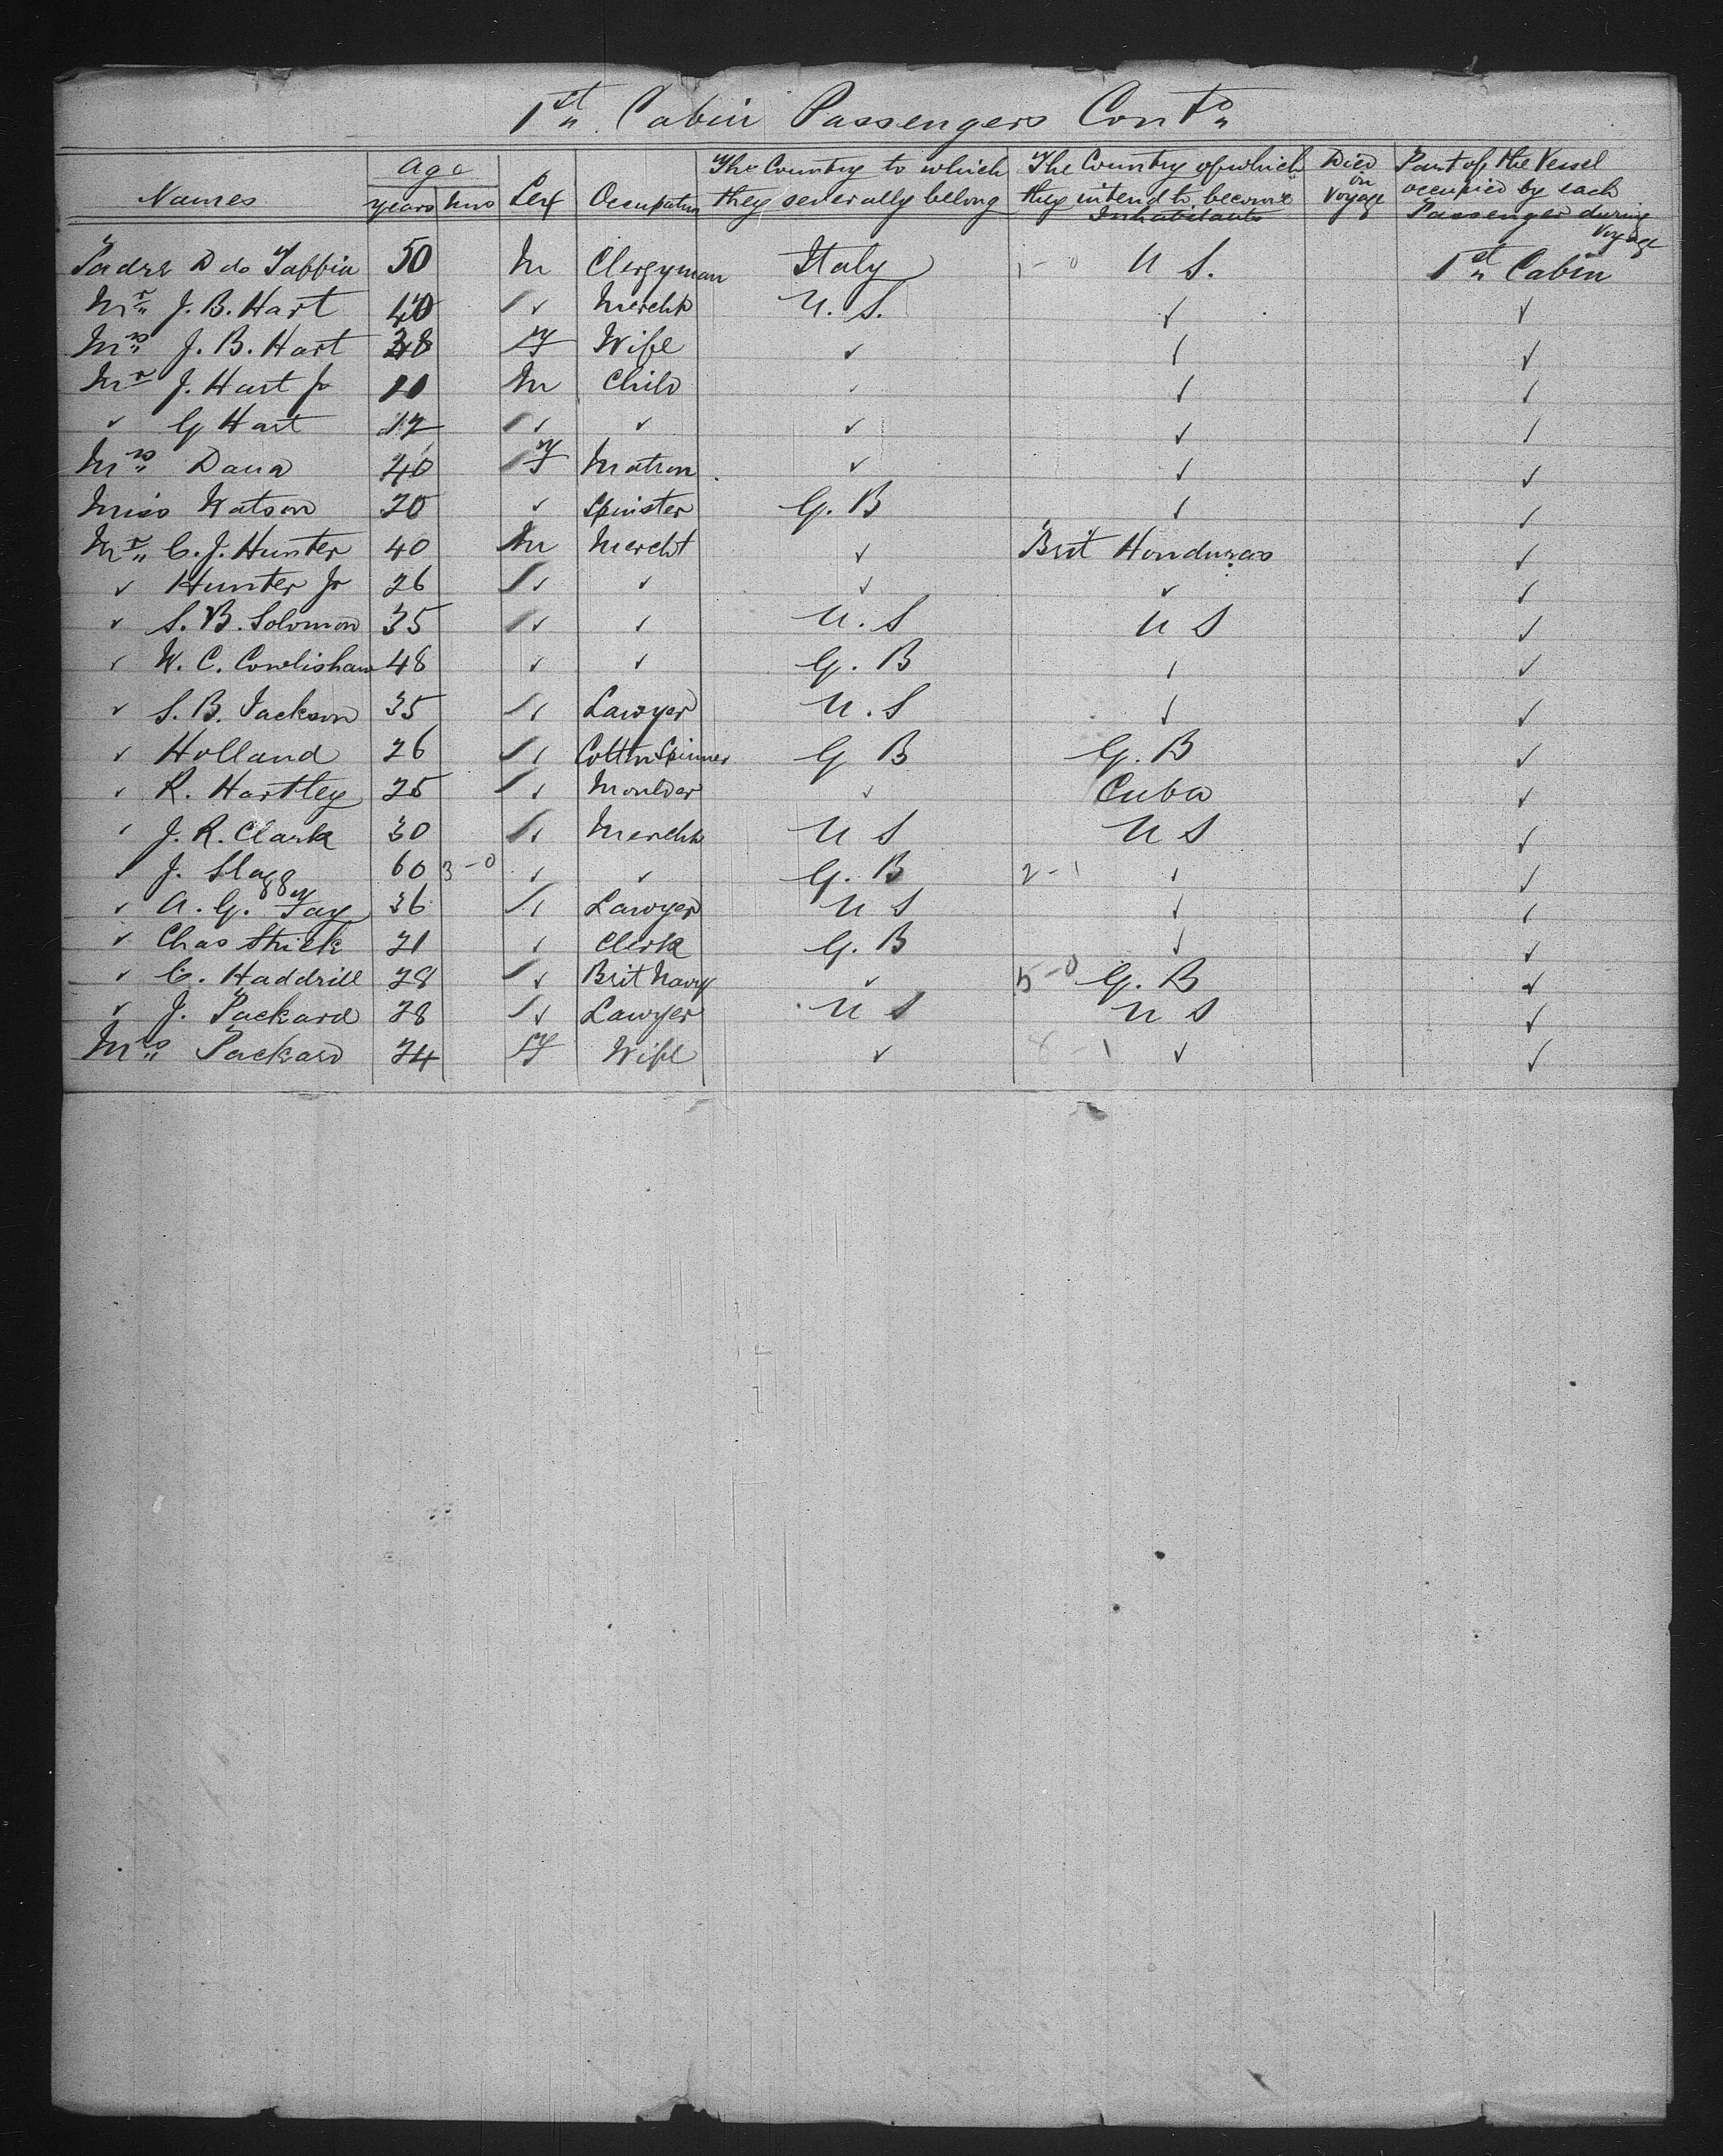 1st Cabin Passengers Contd
Names Age years mos Sex Occupation The Country to which they severally belong The Country of which they intend to become Inhabitants Died on Voyage Part of the Vessel occupied by each Passenger during Voyage
Padre D do 50 M Clergyman Italy 1-0 U S. 1st Cabin
Mr J. B. Hart 40 ✓ Mercht U. S. ✓ ✓
Mrs J. B. Hart 38 F Wife ✓ ✓ ✓
Mr J. Hart Jr 10 M Child ✓ ✓ ✓
✓ G Hart 12 ✓ ✓ ✓ ✓ ✓
Mrs Dana 40 F Matron ✓ ✓ ✓
Miss Watson 20 ✓ Spinster G. B ✓ ✓
Mr C. J. Hunter 40 M Mercht ✓ Brit Honduras ✓
✓ Hunter Jr 26 ✓ ✓ ✓ ✓ ✓
✓ S. B. Solomon 35 ✓ ✓ U. S U S ✓
✓ W. C. Cowlishaw 48 ✓ ✓ G. B ✓ ✓
✓ S. B. Jackson 35 ✓ Lawyer U. S ✓ ✓
✓ Holland 26 ✓ Cotton Spinner G B G. B ✓
✓ R. Hartley 25 ✓ Moulder ✓ Cuba ✓
✓ J. R. Clark 30 ✓ Mercht U S U S ✓
✓ J. Slagg 60 3-0 ✓ ✓ G. B 2-1 ✓ ✓
✓ A. G. Fay 36 ✓ Lawyer U S ✓ ✓
✓ Chas Strick 21 ✓ Clerk G. B ✓ ✓
✓ C. Haddrill 28 ✓ Brit Navy ✓ 5-0 G. B ✓
✓ J. Packard 28 ✓ Lawyer U S U S ✓
Mrs Packard 24 F Wife ✓ ✓ ✓